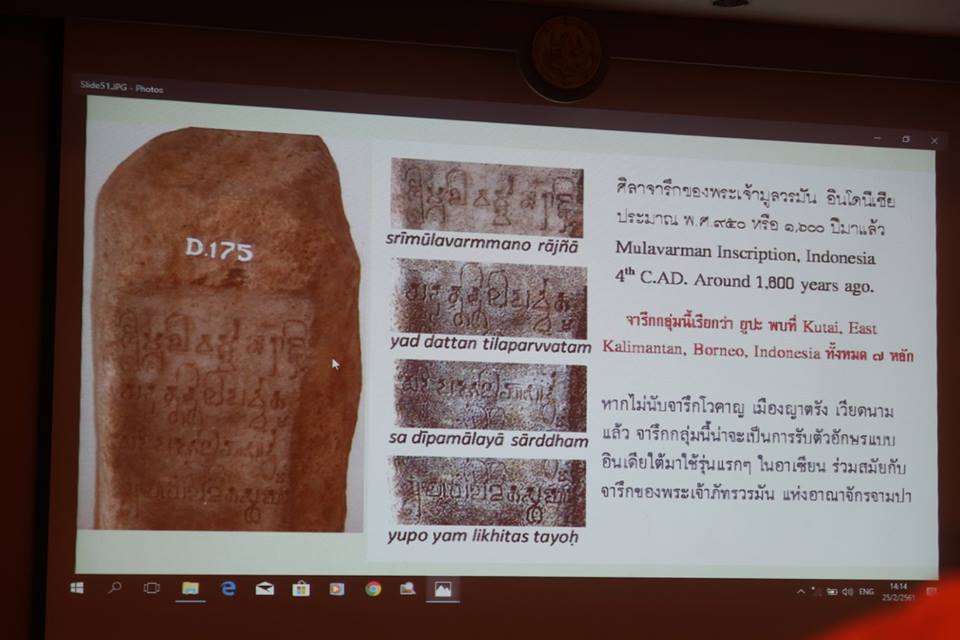 Slide51.JPG - Photos
D.175
śrīmūlavarmmano rājñā
yad dattan tilaparvvatam
sa dīpamālayā sārddham
yupo yam likhitas tayoḥ
ศิลาจารึกของพระเจ้ามูลวรมัน อินโดนีเซีย
ประมาณ พ.ศ.๙๕๐ หรือ ๑,๖๐๐ ปีมาแล้ว
Mulavarman Inscription, Indonesia
4th C.AD. Around 1,600 years ago.
จารึกกลุ่มนี้เรียกว่า ยูปะ พบที่ Kutai, East
Kalimantan, Borneo, Indonesia ทั้งหมด ๗ หลัก
หากไม่นับจารึกโวคาญ เมืองญาตรัง เวียดนาม
แล้ว จารึกกลุ่มนี้น่าจะเป็นการรับตัวอักษรแบบ
อินเดียใต้มาใช้รุ่นแรกๆ ในอาเซียน ร่วมสมัยกับ
จารึกของพระเจ้าภัทรวรมัน แห่งอาณาจักรจามปา
ENG
14:14
25/2/2561